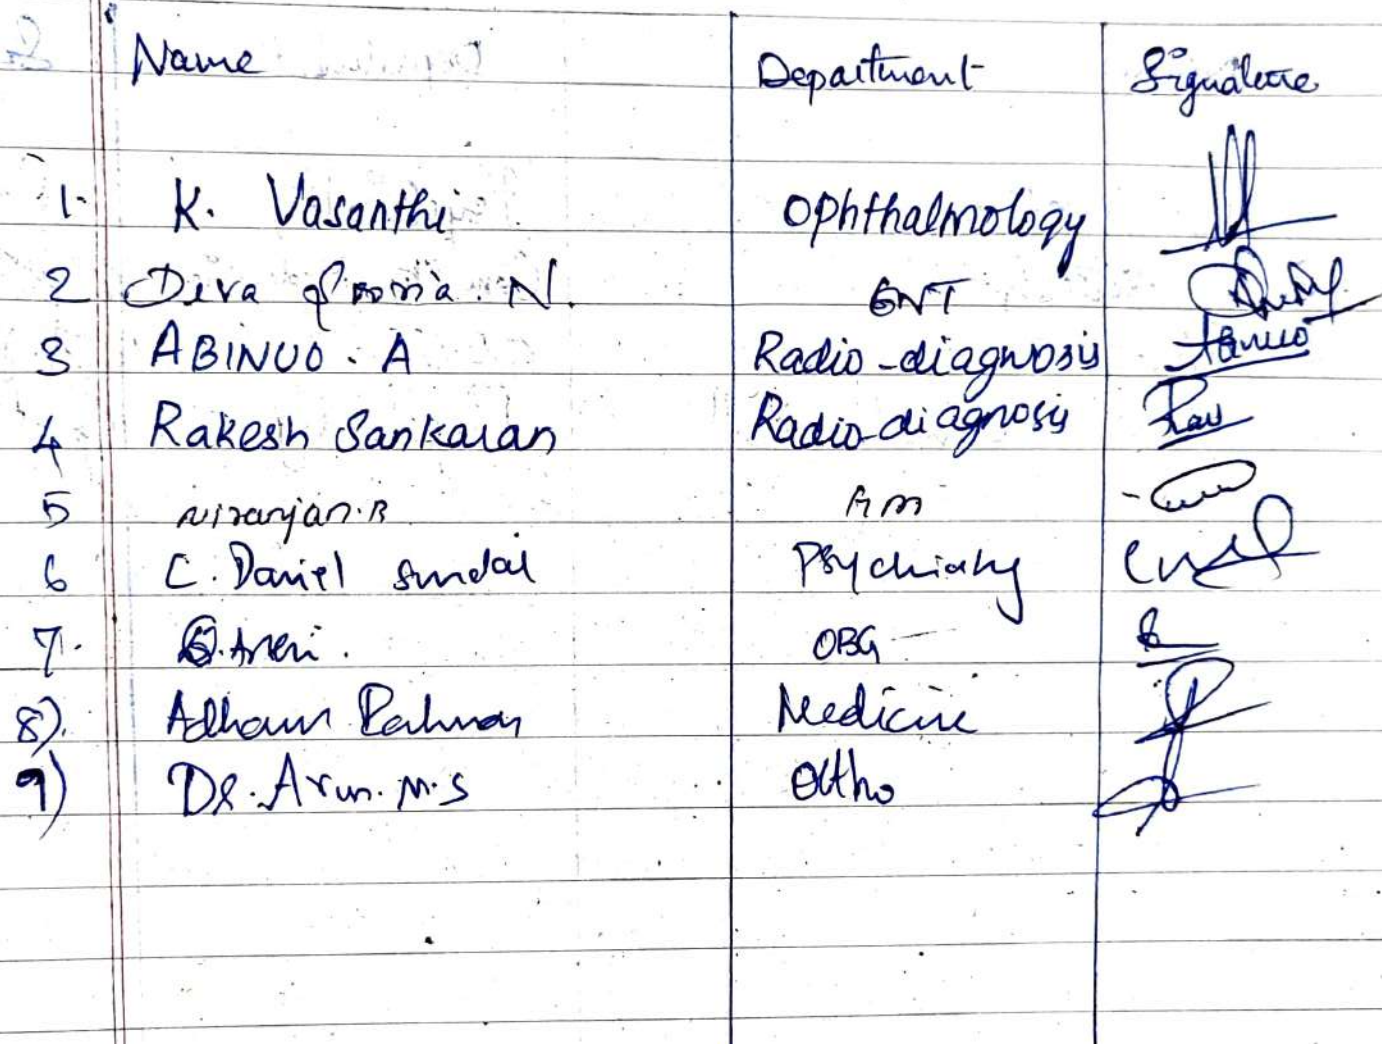 Name Department Signature
1. K. Vasanthi Ophthalmology
2 Deva N. ENT
3 ABINUO. A Radio-diagnosis
4 Rakesh Sankaran Radio-diagnosis
5 Niranjan.B
6 C. Daniel Sundar Psychiatry
7. OBG
8). Rahman Medicine
9) Dr. Arun. M.S Ortho